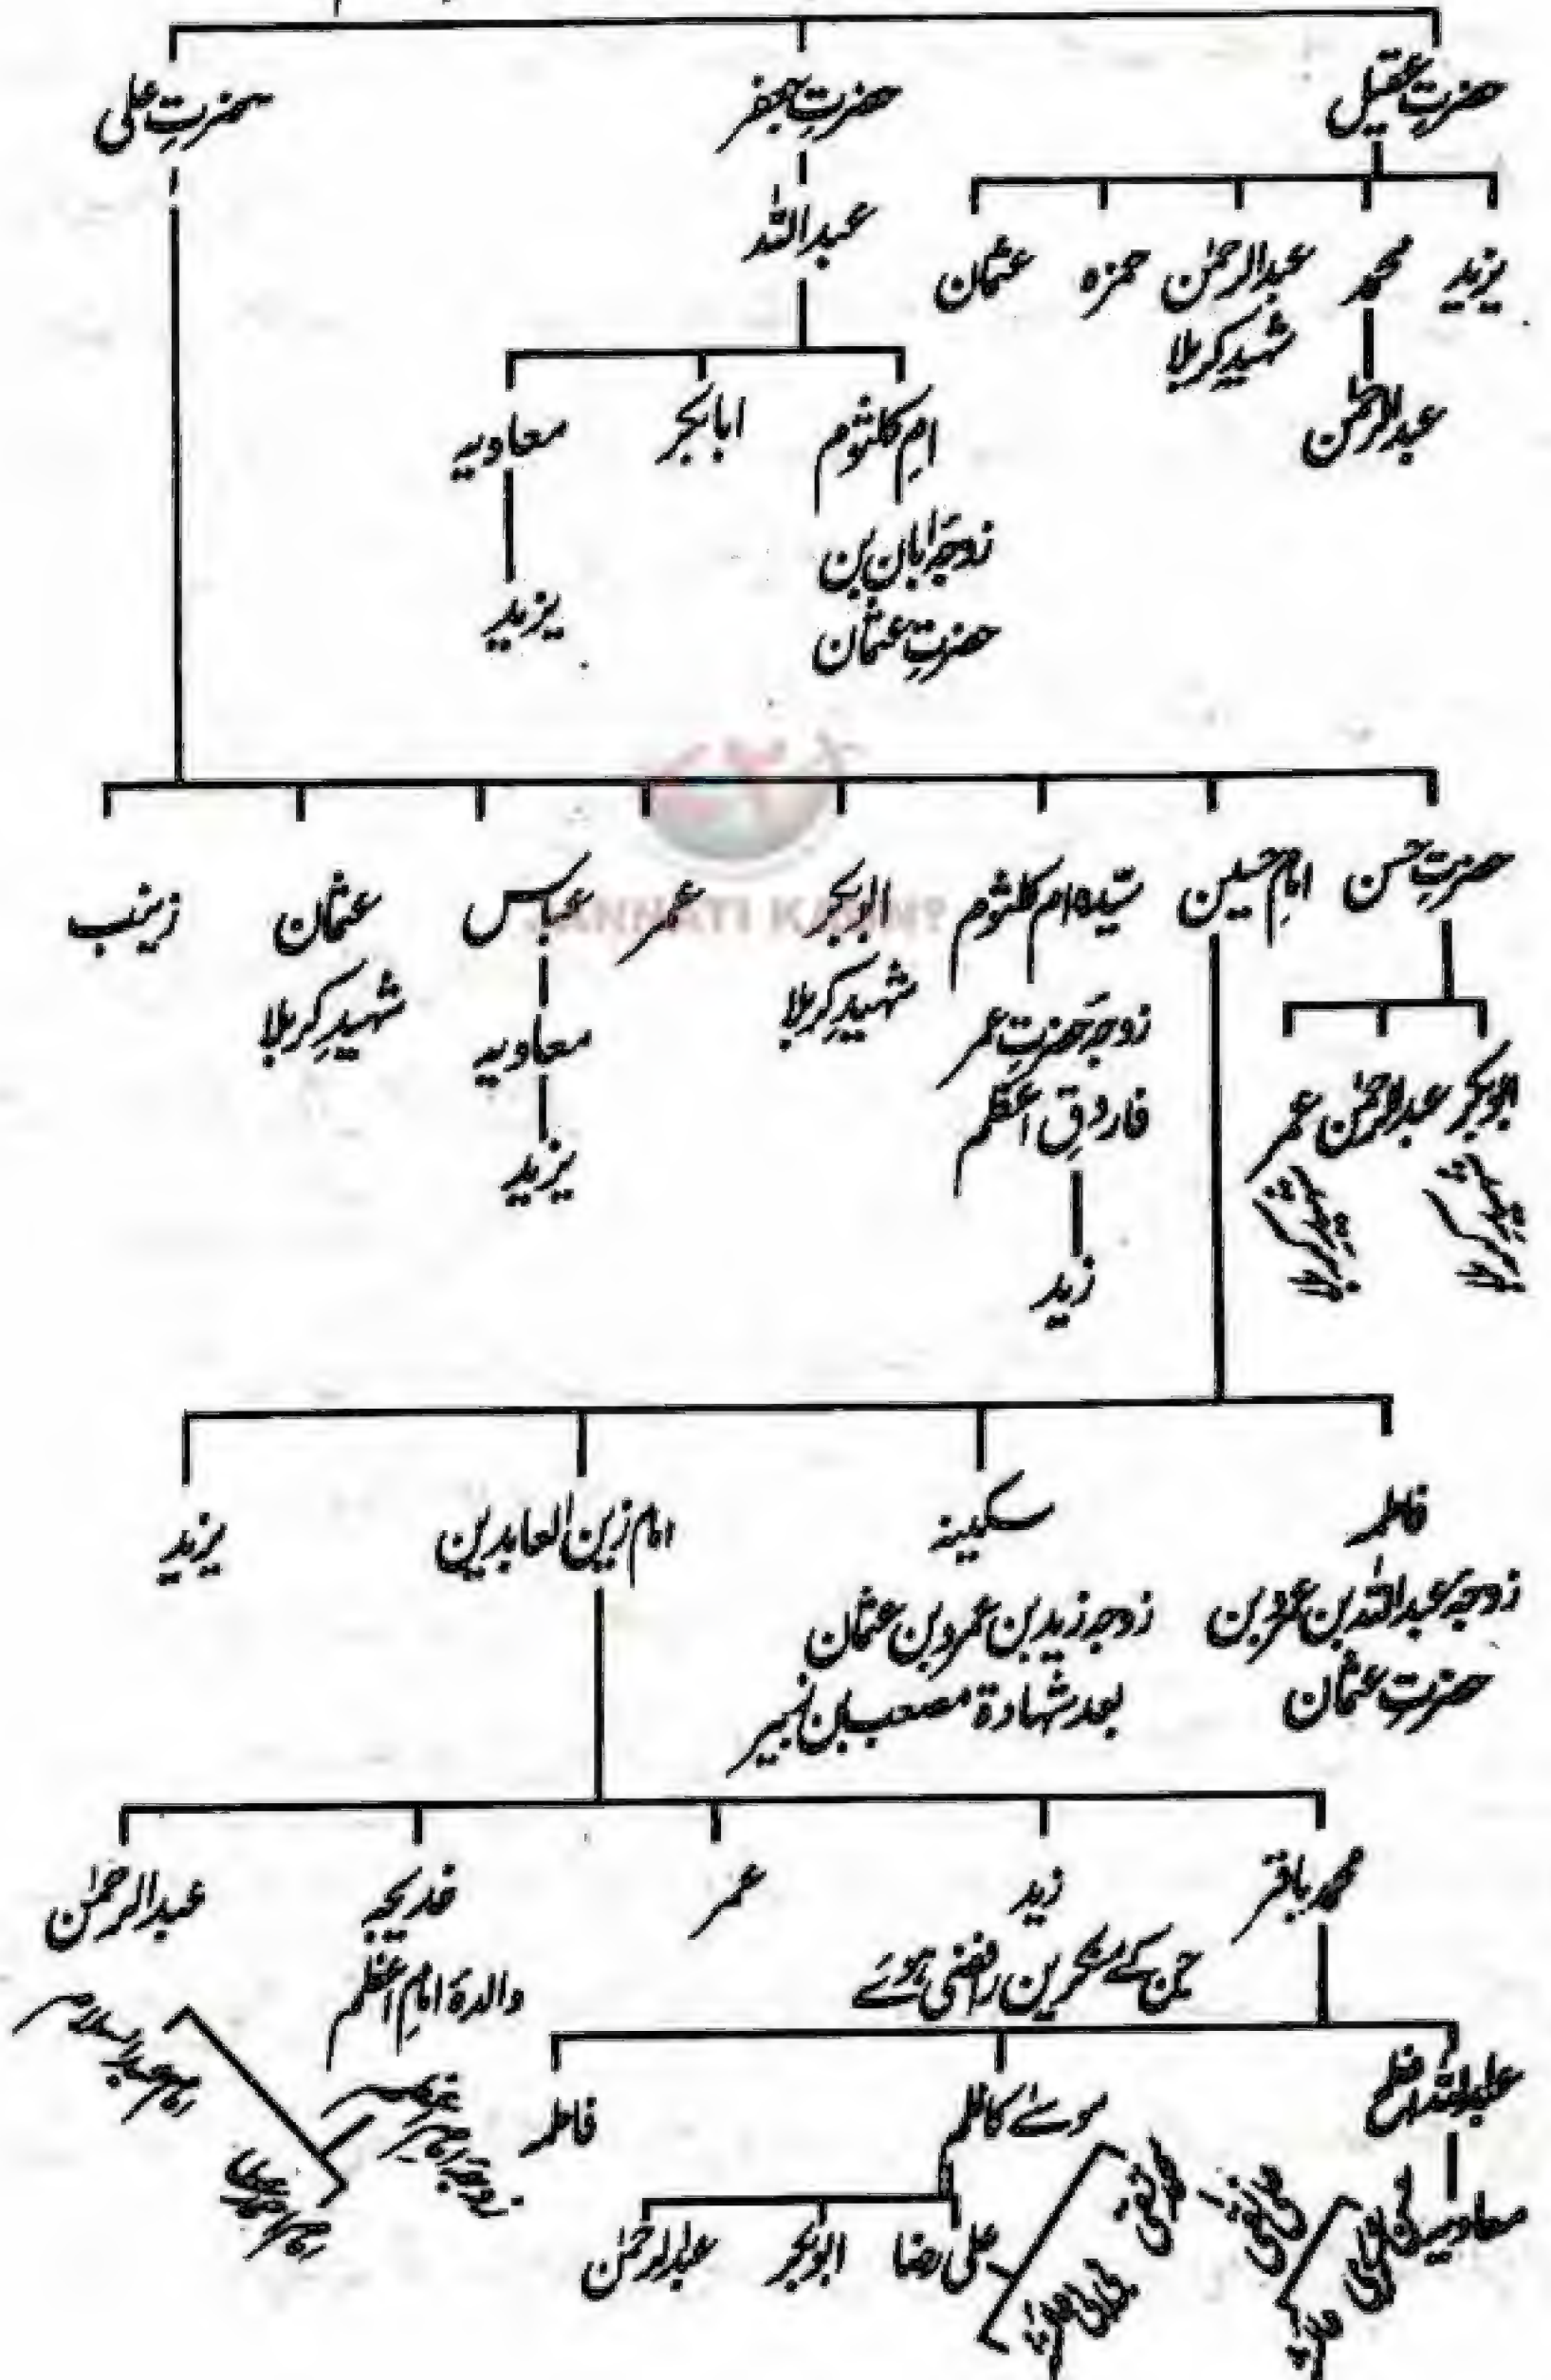 حضرتِ عقیل
حضرتِ جعفر
حضرتِ علی
یزید
محمد
عبدالرحمٰن
شہیدِ کربلا
حمزہ
عثمان
عبدالرحمٰن
عبداللہ
امِ کلثوم
زوجۂ ابان بن
حضرتِ عثمان
ابابکر
معاویہ
یزید
حضرتِ حسن
امام حسین
سیدہ ام کلثوم
زوجۂ حضرتِ عمر
فاروقِ اعظم
زید
ابوبکر
شہیدِ کربلا
عمر
عباس
معاویہ
یزید
عثمان
شہیدِ کربلا
زینب
JANNATI KAUN?
ابوبکر
شہیدِ کربلا
عبدالرحمٰن
عمر
شہیدِ کربلا
فاطمہ
زوجۂ عبداللہ بن عمرو بن
حضرتِ عثمان
سکینہ
زوجہ زید بن عمرو بن عثمان
بعد شہادۃ مصعب بن
امام زین العابدین
یزید
محمد باقر
زید
جن کے منکرین رافضی ہوئے
عمر
خدیجہ
والدۂ امامِ اعظم
عبدالرحمٰن
معاویہ
موسےٰ کاظم
فاطمہ
علی رضا
ابوبکر
عبدالرحمٰن
محمد تقی
علی نقی